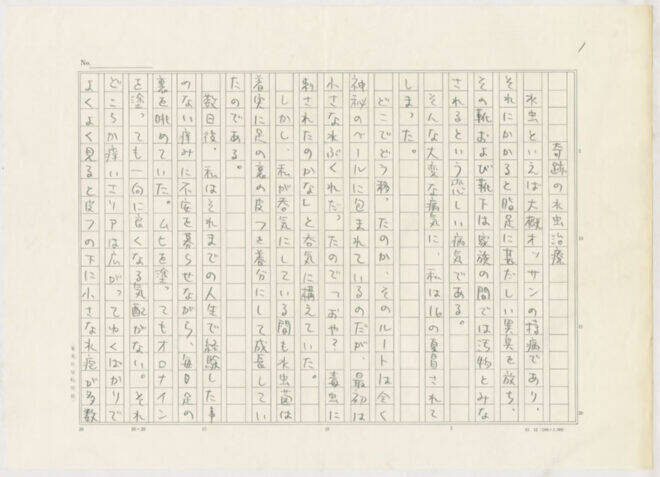 No.
1
奇跡の水虫治療
水虫といえば大概オッサンの持病であり、
それにかかると脂足に甚だしい異臭を放ち、
その靴および靴下は家族の間では汚物とみな
されるという恐しい病気である。
そんな大変な病気に、私は16の夏冒されて
しまった。
どこでどう移ったのか、そのルートは全く
神秘のベールに包まれているのだが、最初は
小さな水ぶくれだったので「おや? 毒虫に
刺されたのかな」と呑気に構えていた。
しかし、私が呑気にしている間も水虫菌は
着実に足の裏の皮フを養分にして成長してい
たのである。
数日後、私はそれまでの人生で経験した事
のない痒みに不安を募らせながら、毎日足の
裏を眺めていた。ムヒを塗ってもオロナイン
を塗っても一向に良くなる気配がない。それ
どころか痒いさリアは広がってゆくばかりで
よくよく見ると皮フの下に小さな水疱が多数
5
10
15
20
20
20×20
15
10
5